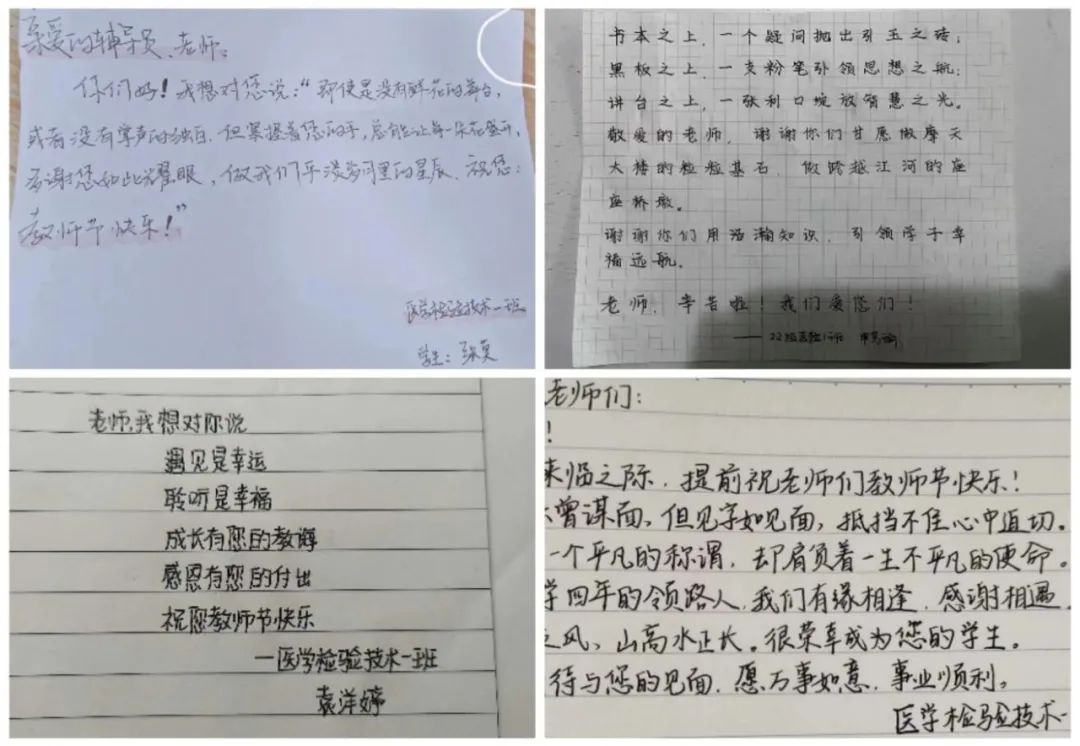 亲爱的辅导员、老师:
你们好!我想对您说:“即使是没有鲜花的舞台,
或者没有掌声的独白,但紧握着您的手,总能让每一朵花盛开,
多谢您如此耀眼,做我们平淡岁月里的星辰.祝您:
教师节快乐!”
医学检验技术一班
学生:张莫
书本之上,一个疑问抛出引玉之砖;
黑板之上,一支粉笔引领思想之航;
讲台之上,一张利口绽放智慧之光。
敬爱的老师,谢谢你们甘愿做摩天
大楼的粒粒基石,做跨越江河的座
座桥墩。
谢谢你们用浩瀚知识,引领学子幸
福远航。
老师,辛苦啦!我们爱您们!
——22级医检1班
老师,我想对你说
遇见是幸运
聆听是幸福
成长有您的教诲
感恩有您的付出
祝您教师节快乐
—医学检验技术一班
袁洋婷
老师们:
!
来临之际,提前祝老师们教师节快乐!
曾谋面,但见字如见面,抵挡不住心中迫切。
一个平凡的称谓,却肩负着一生不平凡的使命。
学四年的领路人,我们有缘相逢,感谢相遇,
之风、山高水长。很荣幸成为您的学生。
待与您的见面,愿万事如意,事业顺利。
医学检验技术一